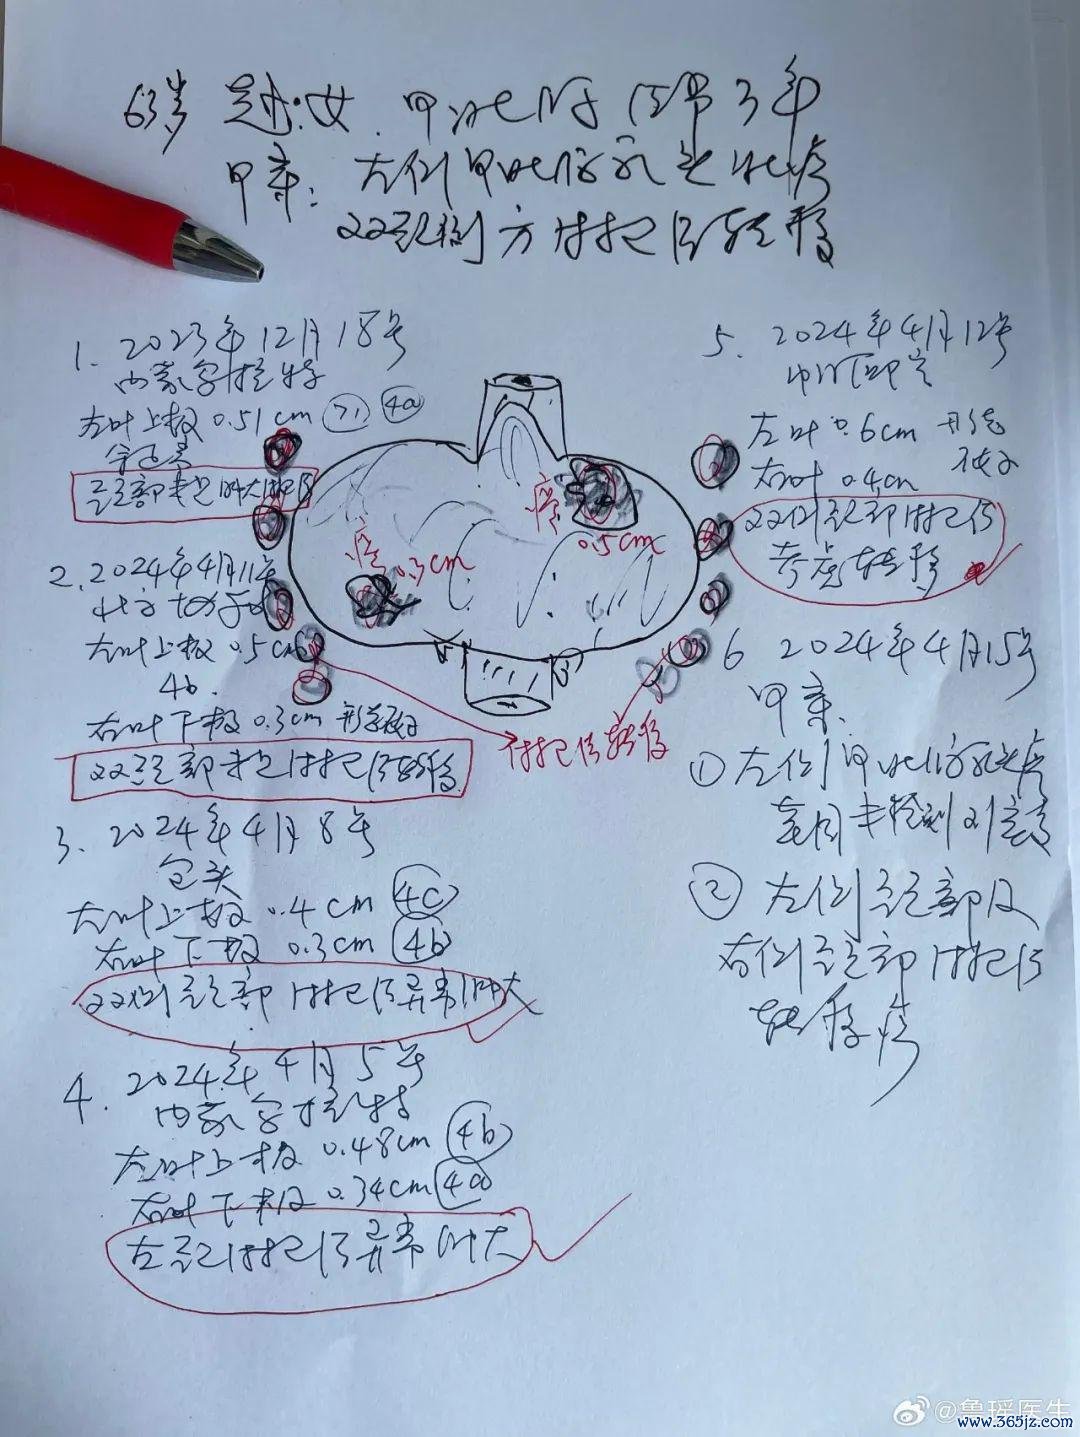 63岁 赵·女 甲状腺结节3年
甲穿: 左侧甲状腺乳头状癌
双颈侧方淋巴结转移
1. 2023年12月18号
内蒙古
左叶上极 0.51cm >1 4a
颈部未见肿大淋巴结
2. 2024年4月11号
左叶上极 0.5cm
4b.
右叶下极 0.3cm 形态
双颈部未见淋巴结转移
3. 2024年4月8号
包头
左叶上极 0.4cm 4c
右叶下极 0.3cm 4b
双侧颈部淋巴结异常肿大
4. 2024年4月5号
内蒙古
左叶上极 0.48cm 4b
右叶下极 0.34cm 4a
左颈淋巴结异常肿大
癌
0.3cm
癌
0.5cm
淋巴结转移
5. 2024年4月12号
左叶 0.6cm 形态
右叶 0.4cm
双侧颈部淋巴结
考虑转移
6 2024年4月15号
甲穿.
① 左侧甲状腺乳头癌
基因未检测到突变
② 左侧颈部及
右侧颈部淋巴结
转移癌
@鲁瑶医生
www.365jz.com